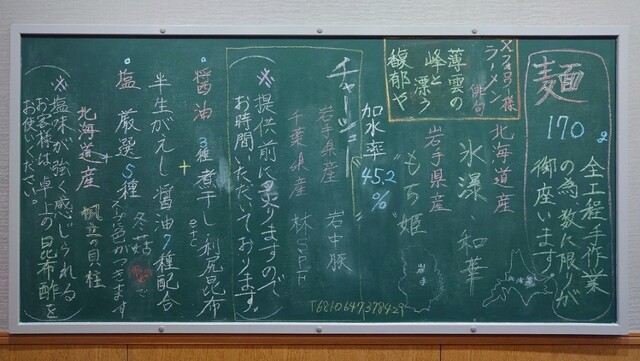 麺
170g
全工程手作業
の為数に限りが
御座います。
Xフォロワー様
ラーメン俳句
薄雲の
峰と漂う
馥郁や
北海道産
氷瀑、和華
岩手県産
もち姫
加水率
45.2
%
岩手
北海道
チャーシュー
岩手県産 岩中豚
千葉県産 林SPF
T6810647378429
※提供前に炙りますので
お時間いただいております。
醤油
3種煮干し、利尻昆布
etc
+
半生がえし 醤油7種配合
塩
厳選5種
冬
で
ます
北海道産
帆立の貝柱
※塩味が強く感じられる
お客様は、卓上の昆布酢を
お使いください。